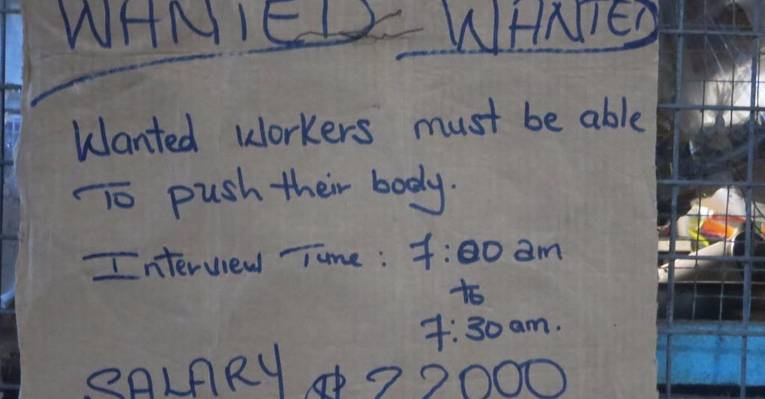 WANTED WANTED
Wanted workers must be able
To push their body.
Interview Time: 7:00 am
to
7:30 am.
SALARY $22000